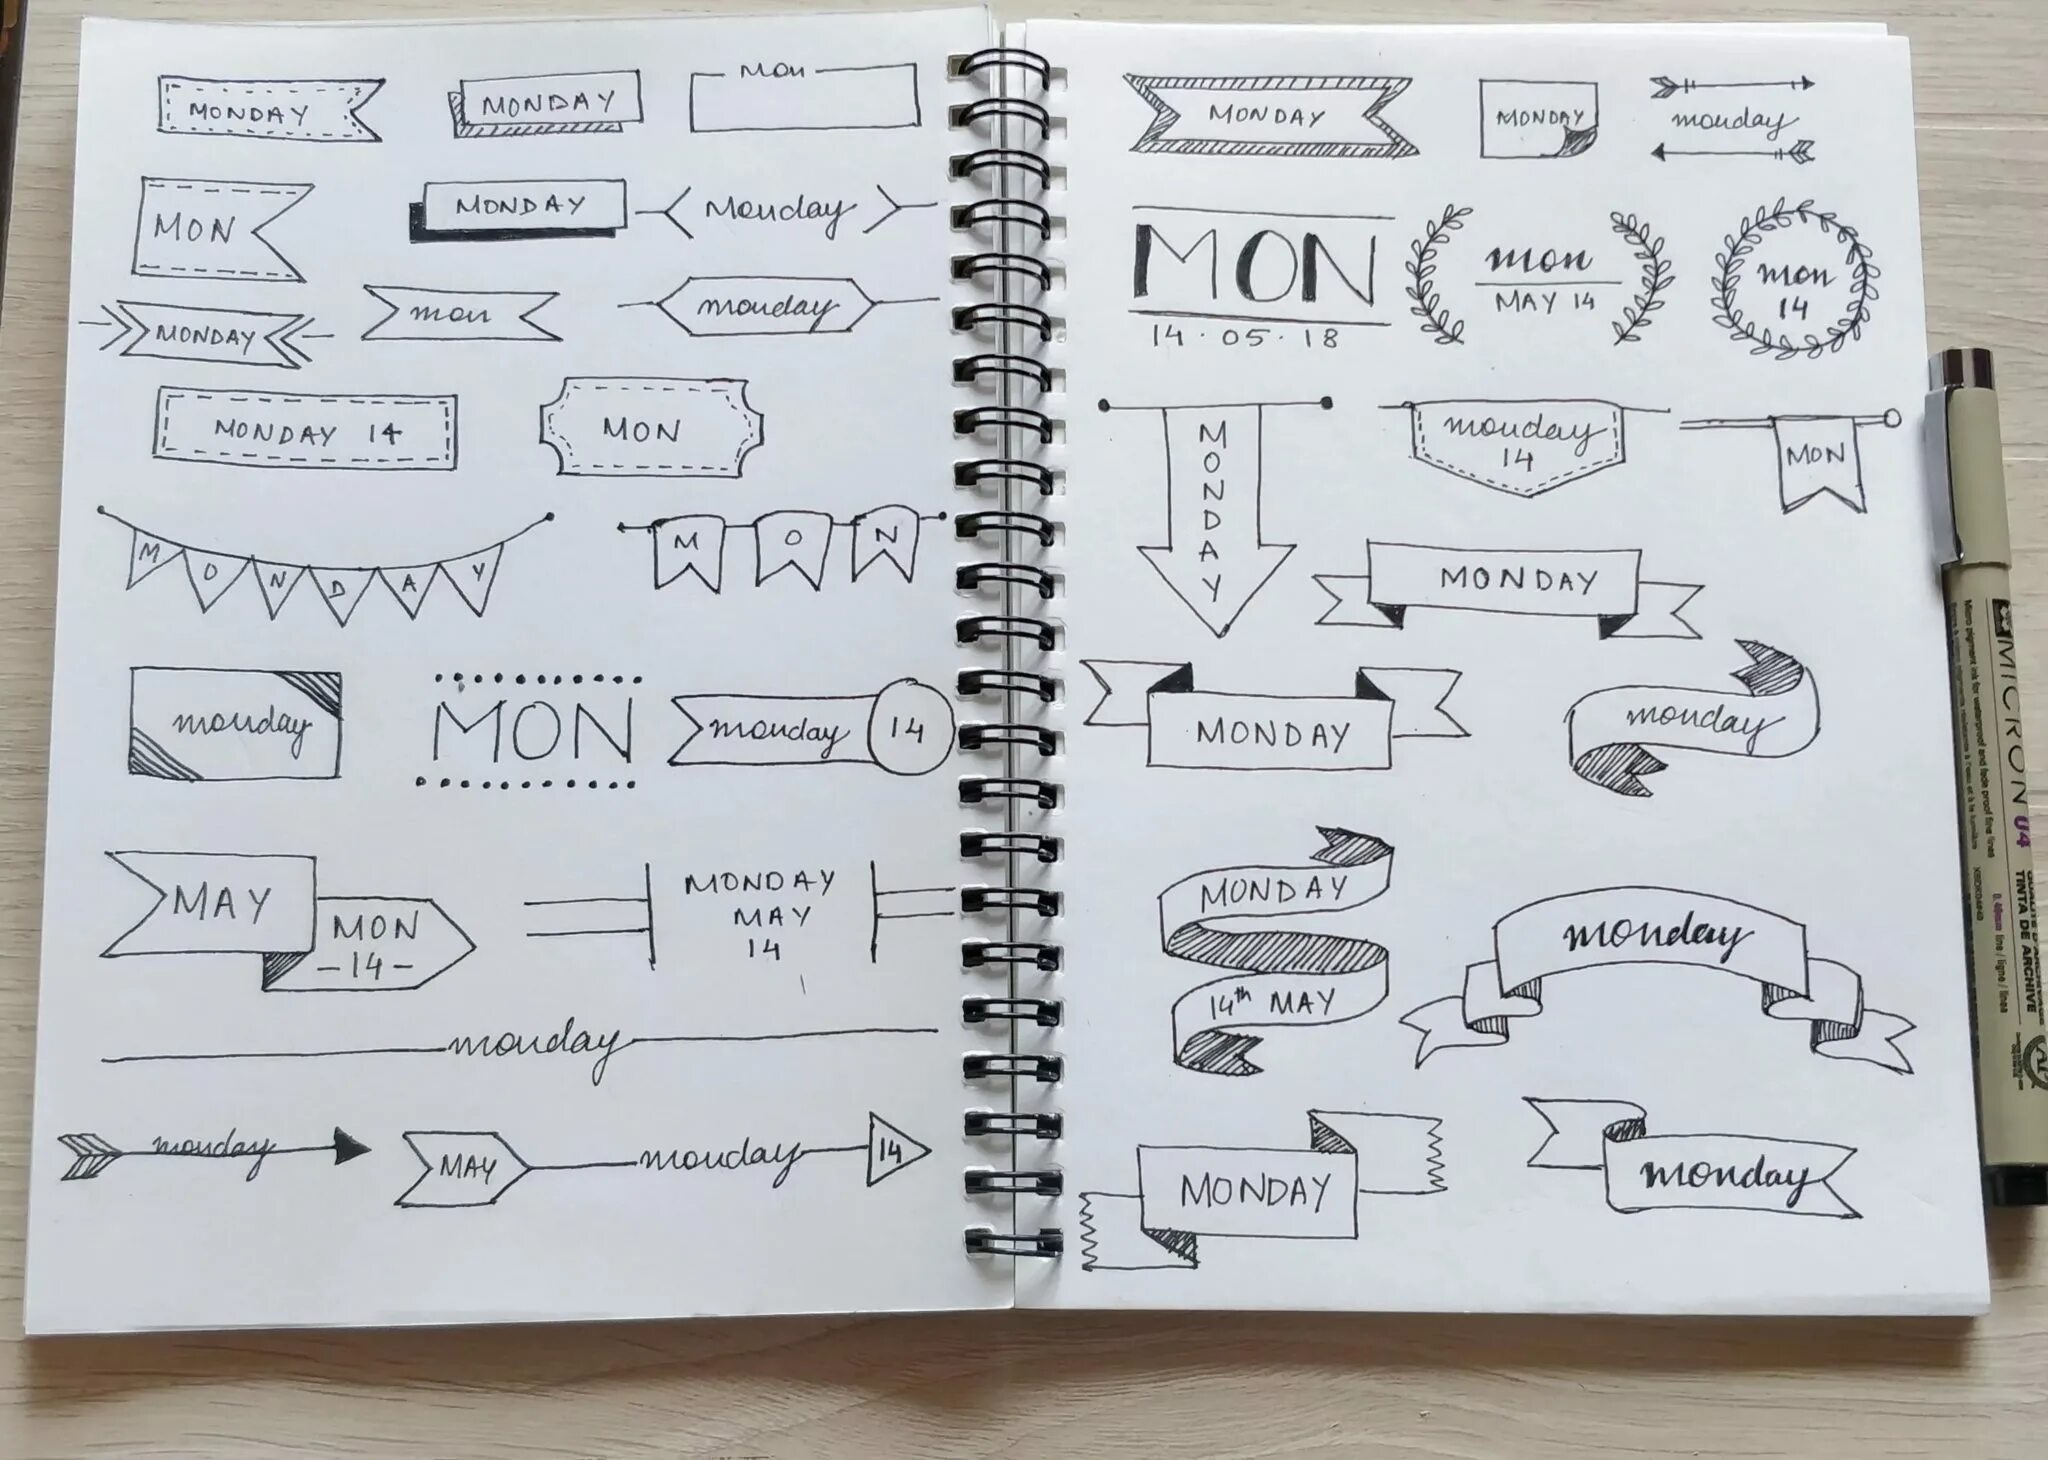 MONDAY
MONDAY
Mon
MON
MONDAY
Monday
MONDAY
mon
monday
MONDAY 14
MON
MONDAY
MON
monday
MON
monday 14
MAY
MON
-14-
MONDAY
MAY
14
monday
monday
MAY monday 14
MONDAY
MONDAY
monday
MON
14·05·18
mon
MAY 14
mon
14
MONDAY
monday
14
MON
MONDAY
MONDAY
monday
MONDAY
14th MAY
monday
MONDAY
monday
MICRON 04